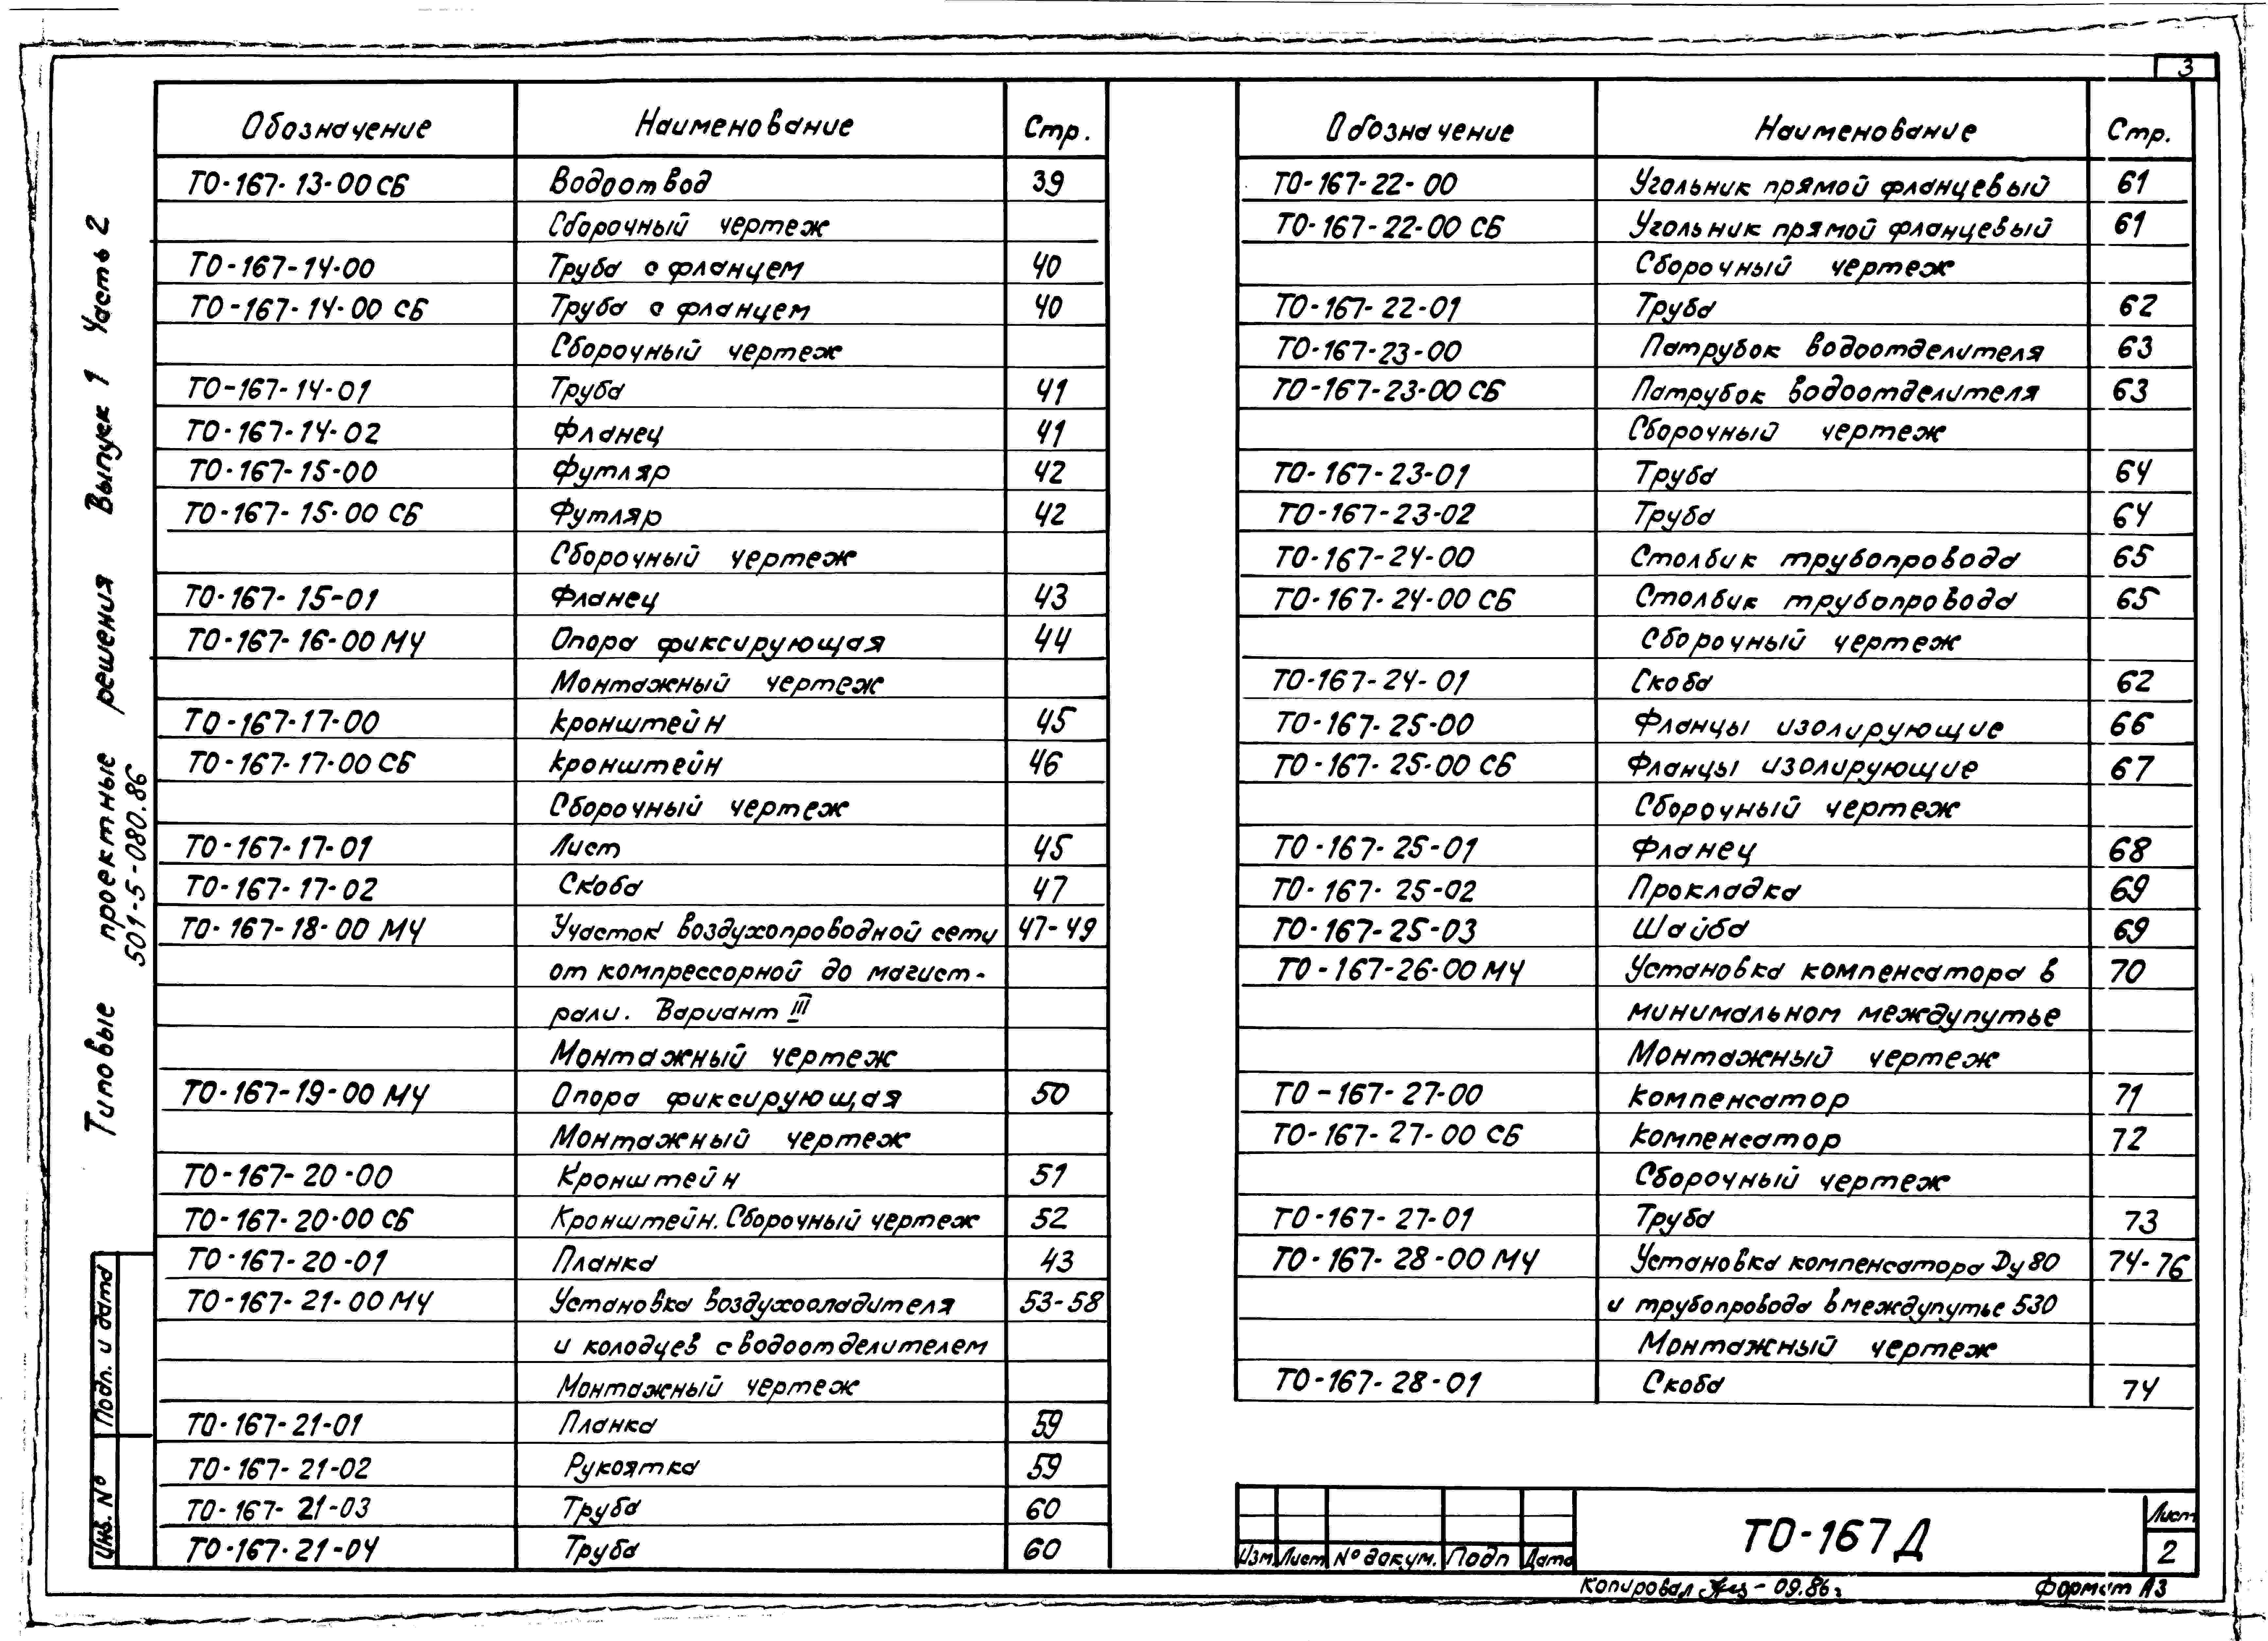 3
Типовые проектные решения Выпуск 1 Часть 2
501-5-080.86
Обозначение Наименование Стр.
ТО-167-13-00 СБ Водоотвод 39
Сборочный чертеж
ТО-167-14-00 Труба с фланцем 40
ТО-167-14-00 СБ Труба с фланцем 40
Сборочный чертеж
ТО-167-14-01 Труба 41
ТО-167-14-02 Фланец 41
ТО-167-15-00 Футляр 42
ТО-167-15-00 СБ Футляр 42
Сборочный чертеж
ТО-167-15-01 Фланец 43
ТО-167-16-00 МЧ Опора фиксирующая 44
Монтажный чертеж
ТО-167-17-00 Кронштейн 45
ТО-167-17-00 СБ Кронштейн 46
Сборочный чертеж
ТО-167-17-01 Лист 45
ТО-167-17-02 Скоба 47
ТО-167-18-00 МЧ Участок воздухопроводной сети 47-49
от компрессорной до магист-
рали. Вариант III
Монтажный чертеж
ТО-167-19-00 МЧ Опора фиксирующая 50
Монтажный чертеж
ТО-167-20-00 Кронштейн 51
ТО-167-20-00 СБ Кронштейн. Сборочный чертеж 52
ТО-167-20-01 Планка 43
ТО-167-21-00 МЧ Установка воздухооладителя 53-58
и колодцев с водоотделителем
Монтажный чертеж
ТО-167-21-01 Планка 59
ТО-167-21-02 Рукоятка 59
ТО-167-21-03 Труба 60
ТО-167-21-04 Труба 60
Обозначение Наименование Стр.
ТО-167-22-00 Угольник прямой фланцевый 61
ТО-167-22-00 СБ Угольник прямой фланцевый 61
Сборочный чертеж
ТО-167-22-01 Труба 62
ТО-167-23-00 Патрубок водоотделителя 63
ТО-167-23-00 СБ Патрубок водоотделителя 63
Сборочный чертеж
ТО-167-23-01 Труба 64
ТО-167-23-02 Труба 64
ТО-167-24-00 Столбик трубопровода 65
ТО-167-24-00 СБ Столбик трубопровода 65
Сборочный чертеж
ТО-167-24-01 Скоба 62
ТО-167-25-00 Фланцы изолирующие 66
ТО-167-25-00 СБ Фланцы изолирующие 67
Сборочный чертеж
ТО-167-25-01 Фланец 68
ТО-167-25-02 Прокладка 69
ТО-167-25-03 Шайба 69
ТО-167-26-00 МЧ Установка компенсатора в 70
минимальном междупутье
Монтажный чертеж
ТО-167-27-00 Компенсатор 71
ТО-167-27-00 СБ Компенсатор 72
Сборочный чертеж
ТО-167-27-01 Труба 73
ТО-167-28-00 МЧ Установка компенсатора Ду 80 74-76
и трубопровода в междупутье 530
Монтажный чертеж
ТО-167-28-01 Скоба 74
Подп. и дата
Инв. №
Изм Лист № докум. Подп Дата
ТО-167 Д
Лист
2
Копировал - 09.86г
Формат А3